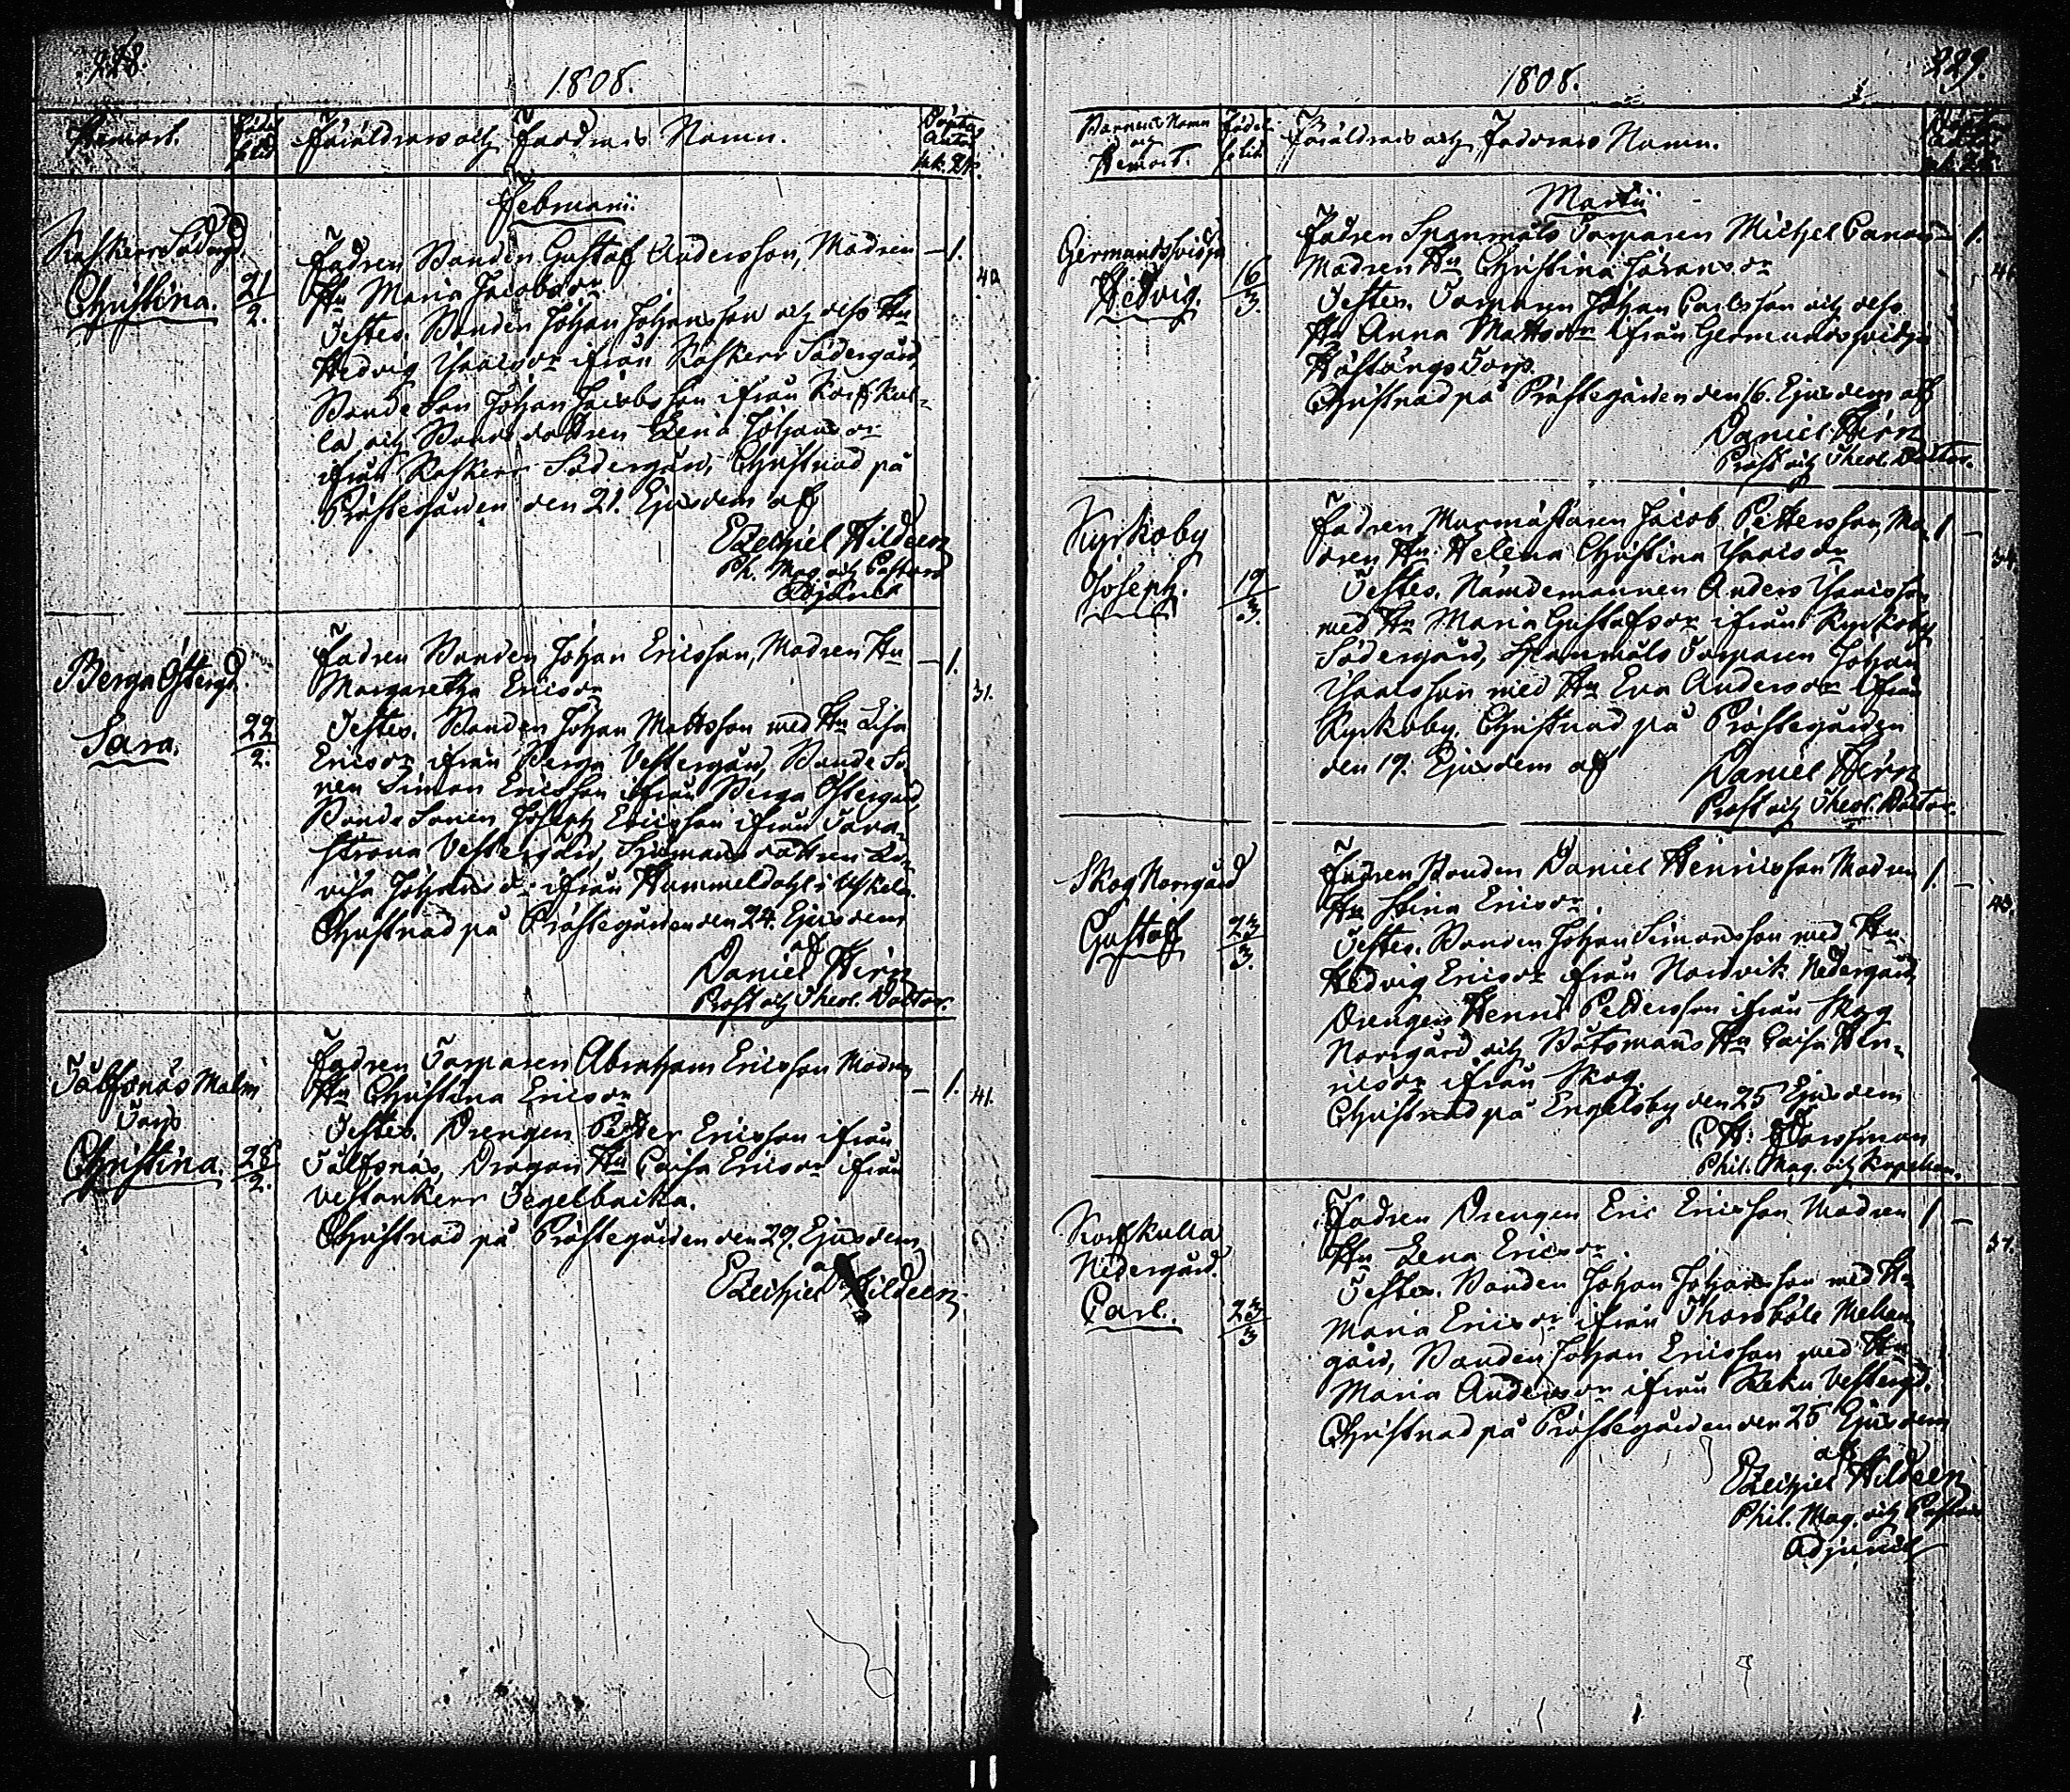 228.
1808.
Hemort.
Födelsetid
Föräldrars och Fadrars Namn.
Döpta Antal
Mk. Qk.
Februarii.
Christina.
21/2.
Fadren Bonden Gustaf Andersson, Modren — 1.
40
Hu Maria Jacobsdr
Testes. Bonden Johan Johansson och dess Hu
Hedvig Isacsdr ifrån Rosskerr Södergård,
Bonde Son Johan Jacobsson ifrån Korskul-
la och Bondedottren Lena Johansdr
ifrån Rosskerr Södergård, Christnad på
Prästegården den 21. Ejusdem af
Ezechiel Hildeen
Ph. Mag. och Pastors
Adjunct
Berga Östergd.
Sara.
22/2.
Fadren Bonden Johan Ericsson, Modren Hu — 1.
31.
Margaretha Ericsdr
Testes. Bonden Johan Mattsson med Hu Lisa
Ericsdr ifrån Berga Vestergård, Bonde So-
nen Simon Ericsson ifrån Berga Östergård,
Bonde Sonen Joseph Ericsson ifrån
Vestergård,
Johansdr ifrån Hummeldahl i
Christnad på Prästegården den 24. Ejusdem
af
Daniel Hirn
Prost och Theol. Doctor.
Malm
Torp
Christina.
28/2.
Fadren Torparen Abraham Ericsson Modren
Hu Christina Ericsdr — 1.
41.
Testes. Drengen Petter Ericsson ifrån
Dragon Hu Caisa Ericsdr ifrån
Vestankerr Tegelbacka.
Christnad på Prästegården den 29. Ejusdem
af
Ezechiel Hildeen
229.
1808.
Barnens Namn
och
Hemort.
Födelsetid
Föräldrars och Fadrars Namn.
Martii
Hedvig.
16/3.
Fadren Spanmåls Torparen Michel — 1.
Modren Hu Christina Göransdr
Testes. Torparen Johan Carlsson och dess
Hu Anna Mattsdr ifrån Germundssvidja
Torp.
Christnad på Prästegården den 16. Ejusdem af
Daniel Hirn
Prost och Theol. Doctor.
Kyrkoby
Joseph.
19/3.
Fadren Murmästaren Jacob Pettersson, Mo- 1 —
34.
dren Hu Helena Christina Isacsdr
Testes. Nämdemannen Anders Isacsson
med Hu Maria Gustafsdr ifrån Kyrkoby
Södergård, Spanmåls Torparen Johan
Isacsson med Hu Eva Andersdr ifrån
Kyrkoby. Christnad på Prästegården
den 19. Ejusdem af
Daniel Hirn
Prost och Theol. Doctor.
Skog Norrgård
Gustaff
23/3.
Fadren Bonden Daniel Henricsson Modren 1. —
43.
Hu Stina Ericsdr
Testes. Bonden Johan Simonsson med Hu
Hedvig Ericsdr ifrån Nordvik Nedergård,
Drengen Henric Pettersson ifrån Skog
Norrgård och Båtsmans Hu Caisa Hen-
ricsdr ifrån Skog.
Christnad på Engelsby den 25 Ejusdem
Phil. Mag. och Kapellan.
Korskulla
Nedergård.
Carl.
23/3
Fadren Drengen Eric Ericsson Modren 1 —
37.
Hu Lena Ericsdr
Testes. Bonden Johan Johansson med Hu
Maria Ericsdr ifrån Thorsböle Mellan
gård, Bonden Johan Ericsson med Hu
Maria Andersdr ifrån Reku Vestergd.
Christnad på Prästegården den 25 Ejusdem
af
Ezechiel Hildeen
Phil. Mag. och Pastors
Adjunct